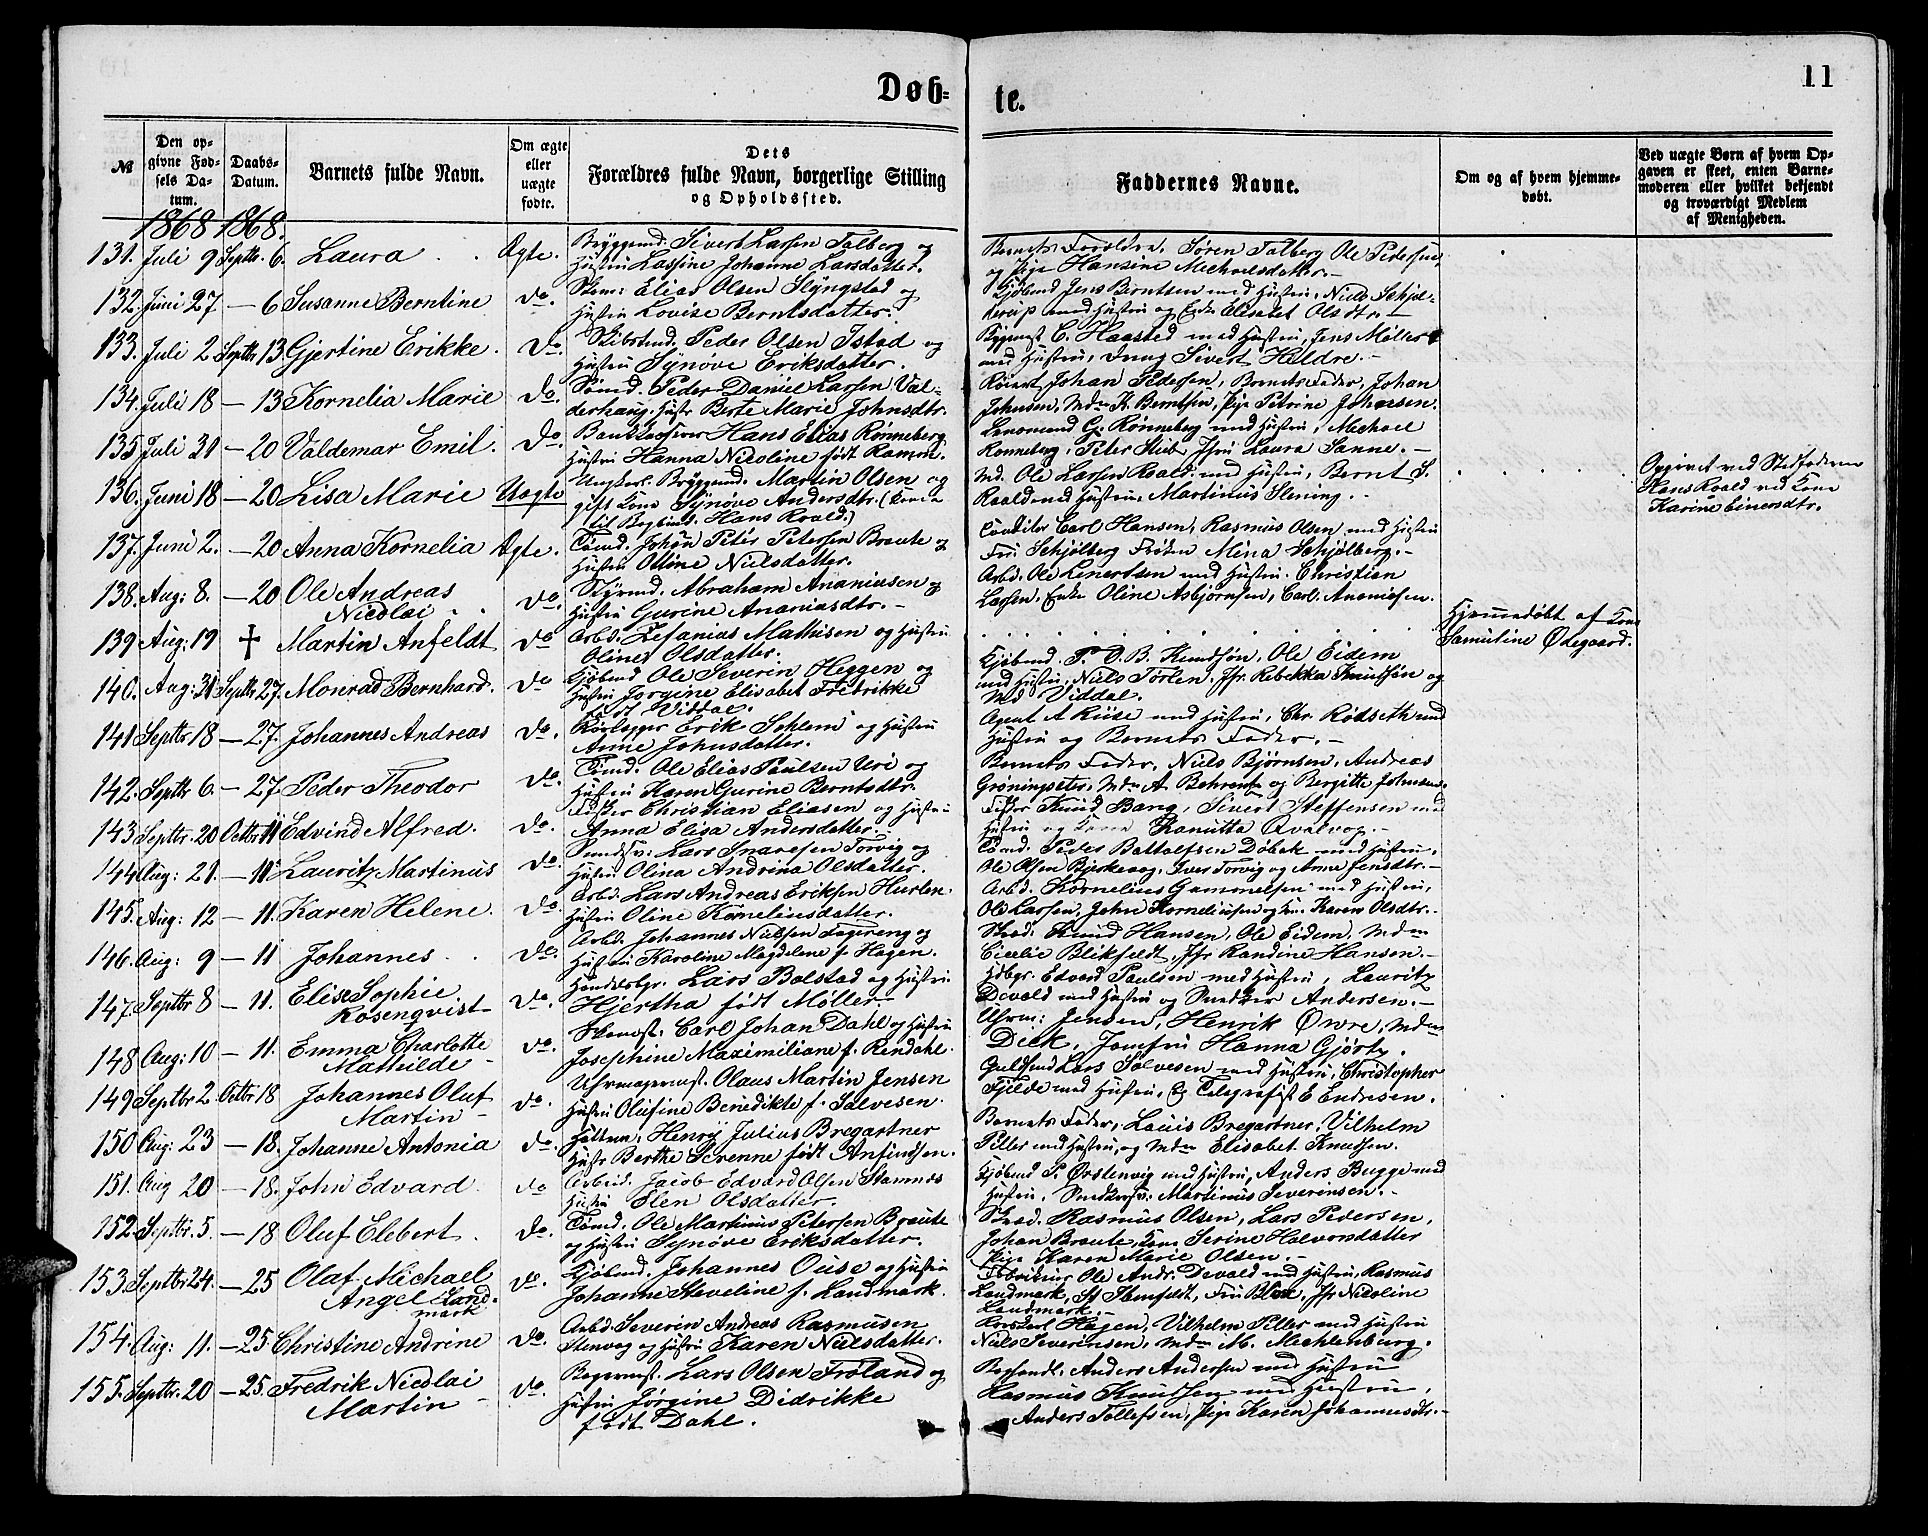 11
Døb-
te.
№
Den op-
givne Fød-
sels Da-
tum.
Daabs-
Datum.
Barnets fulde Navn.
Om ægte
eller
uægte
fødte.
Dets
Forældres fulde Navn, borgerlige Stilling
og Opholdssted.
Faddernes Navne.
Om og af hvem hjemme-
døbt.
Ved uægte Børn af hvem Op-
gaven er skeet, enten Barne-
moderen eller hvilket bekjendt
og troværdigt Medlem
af Menigheden.
1868 1868.
131. Juli 9 Septbr. 6. Laura Ægte. Bryggemd. Sivert Larsen Talberg og
Hustru Lassine Johanne Larsdatter.
Barnets Forældre. Søren Talberg Ole Pedersen,
og Pige Hansine Michaelsdatter.-
132. Juni 27 - 6 Susanne Berntine do. Elias Olsen Slyngstad og
Hustru Lovise Berntsdatter.
Kjøbmd Jens Berntsen med Hustru, Niels Schjel-
derup med Hustru og Enke Elisabet Olsdtr.
133. Juli 2 Septbr. 13 Gjertine Erikke. Do. Peder Olsen Istad og
Hustru Synøve Eriksdatter.
C. Haasted med Hustru, Jens Møller
med Hustru, Sivert Hildre.-
134. Juli 18 - 13 Kornelia Marie Do. Peder Daniel Larsen Val-
derhaug. Hustr Berte Marie Johnsdtr.
Johan Pedersen, Barnets Fader, Johan
Johnsen, Mdm K. Berntsen, Pige Petrine Johansen.
135 Juli 31 - 20 Valdemar Emil. Do. Hans Elias Rønneberg,
Hustru Hanna Nicoline født Ramm.
G. Rønneberg med Hustru, Michael
Rønneberg, Peter Stub, Jfru Laura Sanne.-
136. Juni 18 - 20 Lisa Marie Uægte Ungkarl. Bryggemd. Martin Olsen og
gift Kone Synøve Andersdtr. (Kone
til Bogbind. Hans Roald.)
Md. Ole Larsen Roald med Hustru, Bernt S.
Roald med Hustru, Martinus Slening.-
Opgivet ved Stedfaderen
Hans Roald ved Kone
Karine Einersdtr.
137. Juni 2. - 20 Anna Kornelia Ægte. Tømd. Johan Peter Petersen Braute og
Hustru Oline Nielsdatter.
Conditor Carl Hansen, Rasmus Olsen med Hustru
Fru Schjølberg Frøken Mina Schjølberg.-
138. Aug: 8. - 20 Ole Andreas
Nicolai do. Styrmd. Abraham Ananiasen og
Hustru Gurine Ananiasdtr.-
Arbd. Ole Lenertsen med Hustru. Christian
Larsen, Enke Oline Asbjørnsen, Carl Ananiesen.
139 Aug: 19 ✝ Martin Anfeldt do Arbd. Zefanias Mathisen og Hustru
Oline Olsdatter.
Hjemmedøbt af Kone
Samuline Ødegaard.
140. Aug: 31 Septbr 27. Monrad Bernhard. do Kjøbmd Ole Severin Heggen og
Hustru Jørgine Elisabet Fredrikke
født Viddal.
Kjøbmd. P. O. B. Knudsøn, Ole Eidem
med Hustru, Niels Torlen, Jfr. Rebekka Knudsøn og
Md Viddal.
141 Septbr 18 - 27. Johannes Andreas do. Erik Sehlem og Hustru
Anne Johnsdatter.
Agent A Riise med Hustru, Chr. Rødseth med
Hustru og Barnets Fader.-
142. Septbr 6. - 27. Peder Theodor do. Tømd. Ole Elias Paulsen Uri og
Hustru Karen Gurine Berntsdtr.
Barnets Fader, Niels Bjørnsen, Andreas
Grøningseter, Mdm A. Behrent og Bergitte Johnsens.
143 Septbr. 20 Octbr 11 Edvind Alfred. do. Christian Eliasen og Hustru
Anna Elisa Andersdatter.
Fisker Knud Bang, Sivert Steffensen med
Hustru og Kone Kanutta Qvalvog.-
144 Aug: 21. - 11. Lauritz Martinus do. Lars Snaresen Torvig og
Hustru Olina Andrina Olsdatter.
Tømd. Peder Battalfsen Døbak med Hustru,
Ole Olsen Bjerkevog, Iver Torvig og Anne Jensdtr.-
145. Aug: 12 - 11. Karen Helene. do. Arbd. Lars Andreas Eriksen Hurlen.
Hustru Oline Korneliusdatter.
Arbd. Kornelius Gammelsen med Hustru,
Ole Larsen, John Korneliusen og Karen Olsdtr.-
146. Aug: 9 - 11 Johannes. do. Arbd. Johannes Nielsen Fagerang og
Hustru Karoline Magdalene f. Hagen.
Knud Hansen, Ole Eidem, Mdm
Cicelie Blikfeldt, Jfr Randine Hansen.-
147. Septbr 8 - 11. Elise Sophie
Rosenqvist do. Handelsbgr. Lars Bolstad og Hustru
Hjertha født Møller.-
Hdbgr. Edvard Paulsen med Hustru, Lauritz
Devold med Hustru og Andersen.-
148 Aug: 10 - 11. Emma Charlotte
Mathilde do. Carl Johan Dahl og Hustru
Josephine Maximiliane f. Rendahl.
Uhrm: Jensen, Henrik Øwre, Mdm
Deek, Jomfru Hanna Gjørtz.
149 Septbr 2. Octbr 18 Johannes Oluf
Martin do. Uhrmagermst. Olaus Martin Jensen
Hustru Olufine Benedikte f. Salvesen.
Guldsmd Lars Salvesen med Hustru, Christopher
Fjelde med Hustru, Telegrafist E Endresen.
150 Aug: 23 - 18. Johanne Antonia do. Henry Julius Bregartner
Hustr Berthe Serenne født Anfindsen.
Barnets Fader, Louis Bregartner, Vilhelm
Piller med Hustru, og Mdm Elisabet Knudsen.
151. Aug 20 - 18. John Edvard do Arbeid. Jacob Edvard Olsen Stamnæs
Hustru Elen Olsdatter.
Kjøbmd P. Ørstenvig med Hustru, Anders Bugge med
Hustru. Martinus Severinsen.-
152. Septbr. 5. - 18 Oluf Elebert. do. Tømd. Ole Martinus Petersen Braute
og Hustru Synøve Eriksdatter.
Rasmus Olsen, Lars Pedersen,
Johan Braute, Kone Serine Halvorsdatter
Pige Karen Marie Olsen.-
153. Septbr. 24. - 25 Olaf Michael
Angel Land-
mark do. Kjøbmd. Johannes Ouse og Hustru
Johanne Steveline f. Landmark.
Ole Andr. Devold med Hustru, Rasmus
Landmark, St Stamfeldt, Fru Jfr Nicoline
Landmark.-
154. Aug: 11. - 25. Christine Andrine do. Arbd. Severin Andreas Rasmusen
Stenvog og Hustru Karen Nielsdatter.
Hagen, Vilhelm Piller med Hustru
Niels Severinsen, Mdm M. Mechlenburg.
155. Septbr. 20 - 25. Fredrik Nicolai
Martin do. Lars Olsen Frøland og
Hustru Jørgine Didrikke
født Dahl.
Anders Andersen med Hustru
Rasmus Knudsen med Hustru,
Anders Tollefsen, Pige Karen Johannesdtr.-